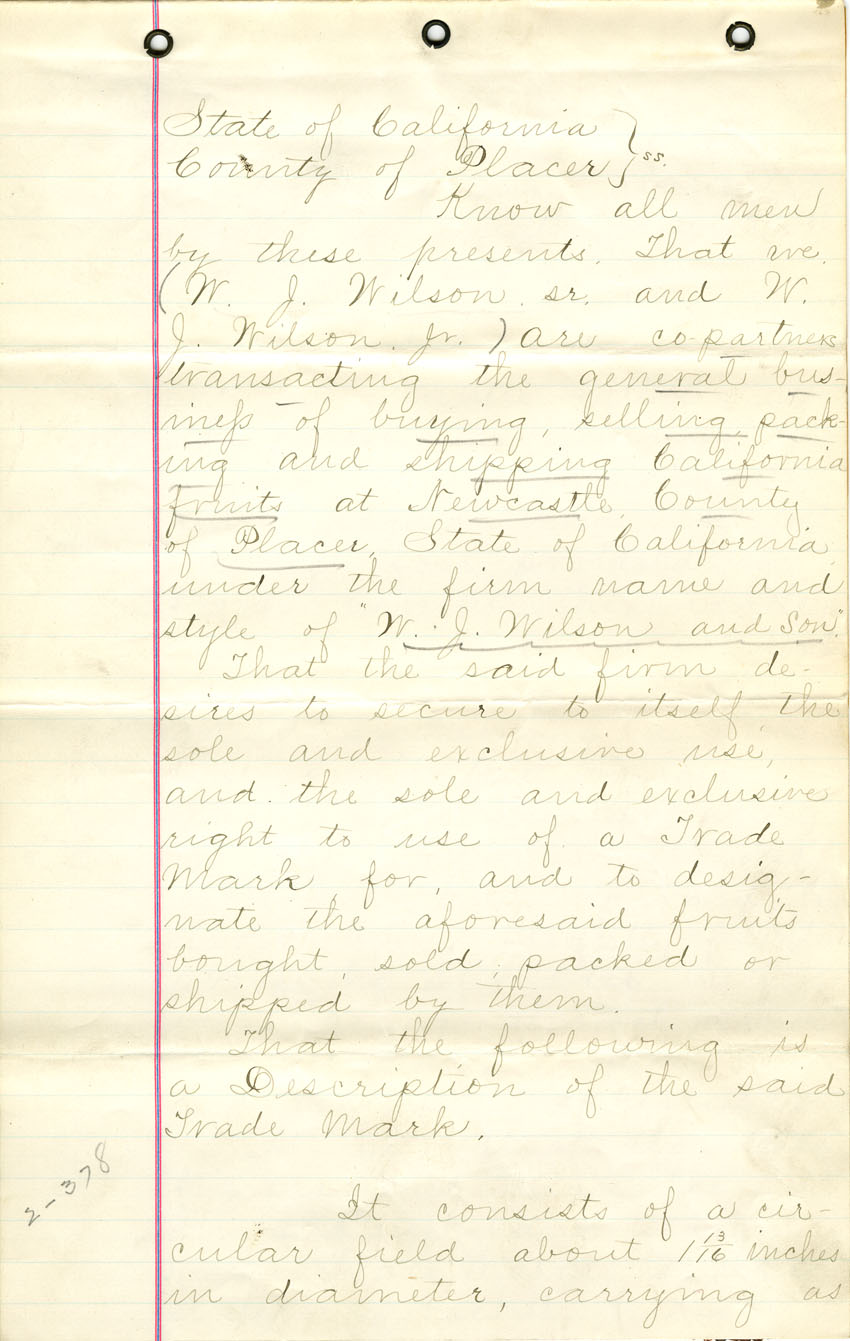 State of California }
County of Placer } ss.
Know all men
by these presents. That we.
(W. J. Wilson. sr. and W.
J. Wilson. Jr.) are co-partners
transacting the general bus-
iness of buying, selling, pack-
ing and shipping California
fruits at Newcastle, County
of Placer, State of California,
under the firm name and
style of "W. J. Wilson and Son".
That the said firm de-
sires to secure to itself the
sole and exclusive use,
and the sole and exclusive
right to use of a Trade
Mark for, and to desig-
nate the aforesaid fruits
bought, sold, packed or
shipped by them.
That the following is
a Description of the said
Trade Mark.
2-378
It consists of a cir-
cular field about 1 13/16 inches
in diameter, carrying as